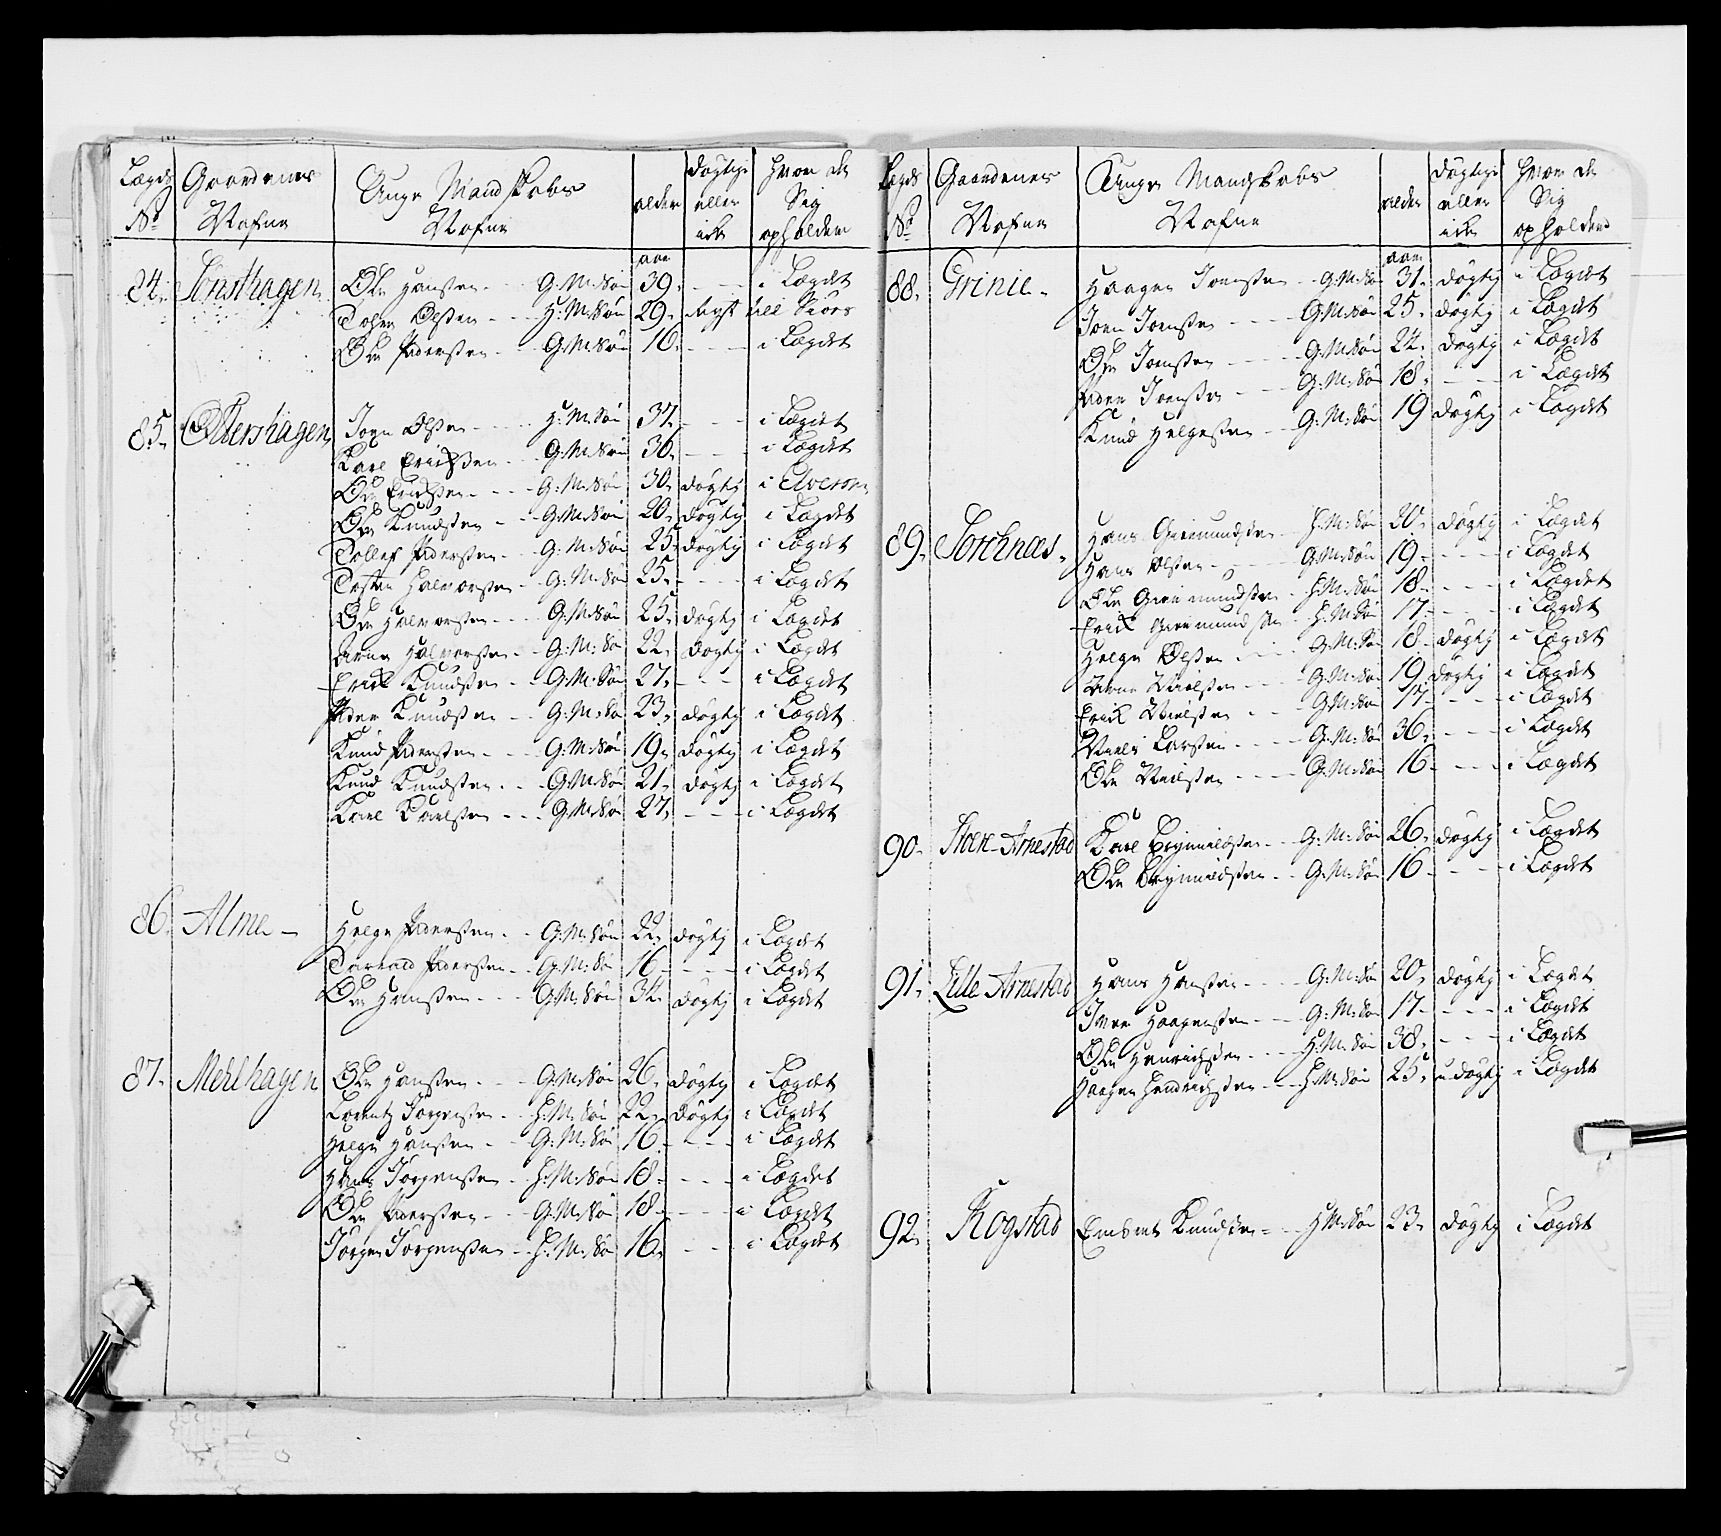 Lægds No | Gaardenes Nafne | Unge Mandskabs Nafne | alder | døgtige eller icke | hvor de Sig opholdem
aar
84. Tonsthagen Ole Hansen G:M:Søn 39. i Lægdet
Olsen H:M:Søn 29. till Siøes
Ole Pedersen G:M:Søn 16. i Lægdet
85. Ollershagen Joen Olsen H:M:Søn 37. i Lægdet
Karl Erichsen G:M:Søn 36. i Lægdet
Ole Erichsen G:M:Søn 30. døgtig i Elverom
Ole Knudsen G:M:Søn 20. døgtig i Lægdet
Tollef Pedersen G:M:Søn 25. døgtig i Lægdet
Tosten Halvorsen G:M:Søn 25. i Lægdet
Ole Halvorsen G:M:Søn 25. døgtig i Lægdet
Arne Halvorsen G:M:Søn 22. døgtig i Lægdet
Erick Knudsen G:M:Søn 27. i Lægdet
Peder Knudsen G:M:Sø 23. døgtig i Lægdet
Knud Pedersen G:M:Søn 19. døgtig i Lægdet
Knud Knudsen G:M:Søn 21. døgtig i Lægdet
Karl Karlsen G:M:Søn 27. i Lægdet
86. Alme Helge Pedersen G:M:Søn 22. døgtig i Lægdet
Pedersen G:M:Sø 16. i Lægdet
Ole Hansen G:M:Søn 34. døgtig i Lægdet
87. Mehlhagen Ole Hansen G:M:Søn 26. døgtig i Lægdet
Lorentz Jørgensen H:M:Søn 22. døgtig i Lægdet
Helge Hansen G:M:Søn 16. i Lægdet
Hans Jørgensen H:M:Søn 18. i Lægdet
Ole Pedersen G:M:Søn 18. i Lægdet
Jørgen Jørgensen H:M:Sø 16. i Lægdet
Lægds No | Gaardenes Nafne | Unge Mandskabs Nafne | alder | døgtige eller icke | hvor de Sig opholdend
aar
88. Grinie Haagen Joensen G:M:Søn 31. døgtig i Lægdet
Joen Joensen G:M:Søn 25. døgtig i Lægdet
Ole Joensen G:M:Søn 24. døgtig i Lægdet
Peder Joensen G:M:Søn 18. i Lægdet
Knud Helgesen G:M:Søn 19 døgtig i Lægdet
89. Sorknæs Hans Giermundsen H:M:Søn 20. døgtig i Lægdet
Hans Olsen G:M:Søn 19. i Lægdet
Ole Giermundsen H:M:Søn 18. i Lægdet
Erick Giermundsen H:M:Søn 17. i Lægdet
Helge Olsen G:M:Sø 18. døgtig i Lægdet
Arne Nielsen G:M:Søn 19 døgtig i Lægdet
Erick Nielsen G:M:Søn 17. i Lægdet
Niels Larsen G:M:Søn 36. i Lægdet
Ole Nielsen G:M:Søn 16. i Lægdet
90. Stoere-Arnestad Karl G:M:Søn 26. døgtig i Lægdet
Ole G:M:Søn 16. i Lægdet
91. Lille Arnestad Hans Hansen G:M:Søn 20. døgtig i Lægdet
Iver Haagensen G:M:Søn 17. i Lægdet
Ole Henrichsen H:M:Søn 38. i Lægdet
Haagen Hendrichsen H:M:Søn 25. udøgtig i Lægdet
92. Rogstad Embret Knudsen H:M:Søn 23. døgtig i Lægdet